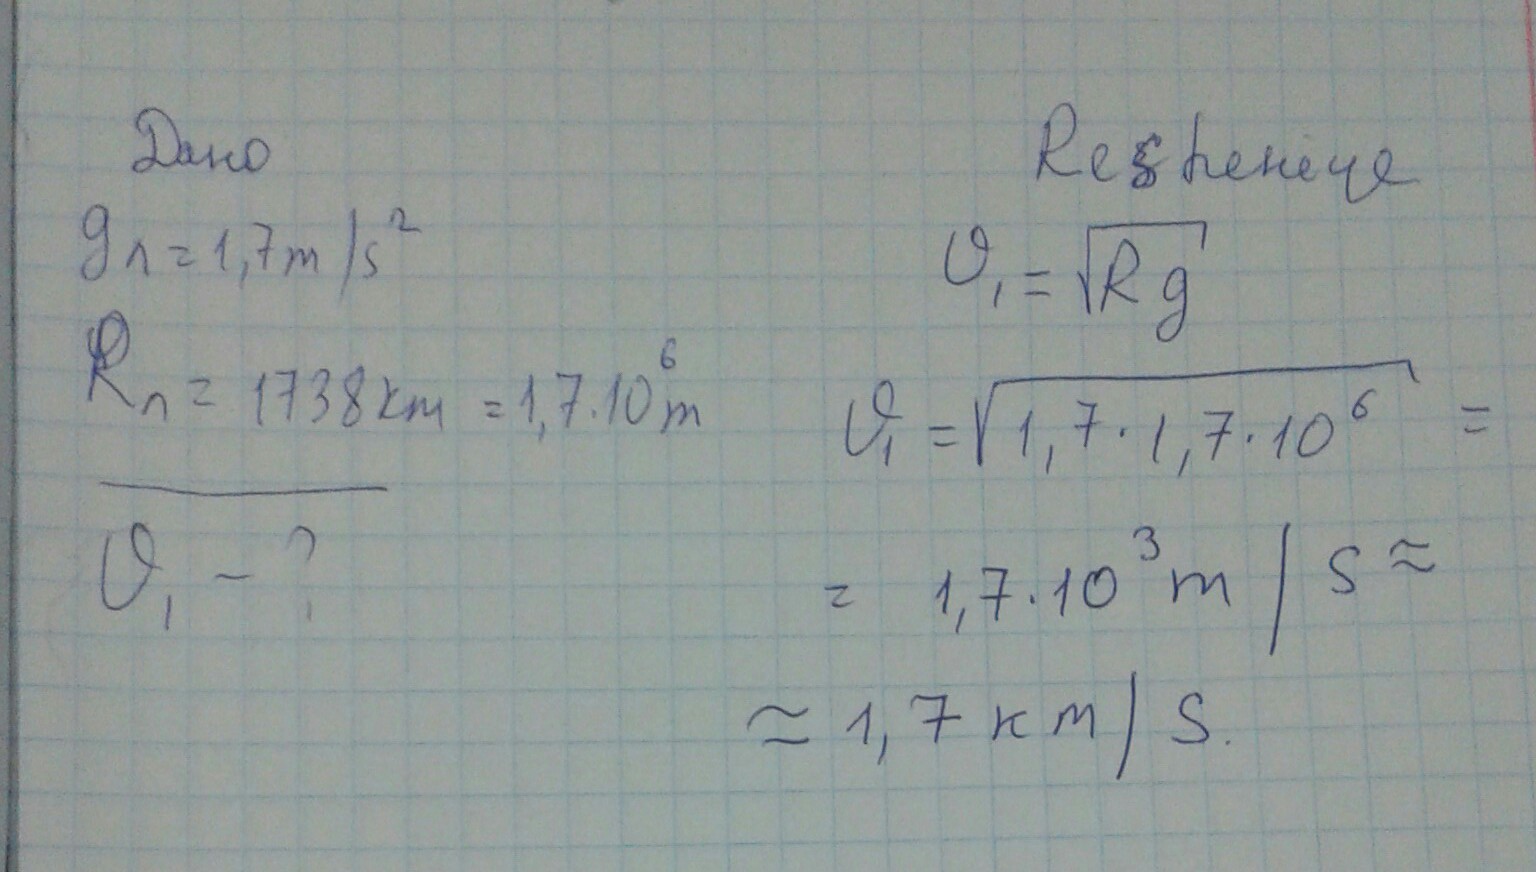 Дано
gл = 1,7 m/s²
Rл = 1738 km = 1,7·10⁶ m
υ₁ – ?
υ₁ = √Rg
υ₁ = √1,7·1,7·10⁶ =
= 1,7·10³ m/s ≈
≈ 1,7 km/s.